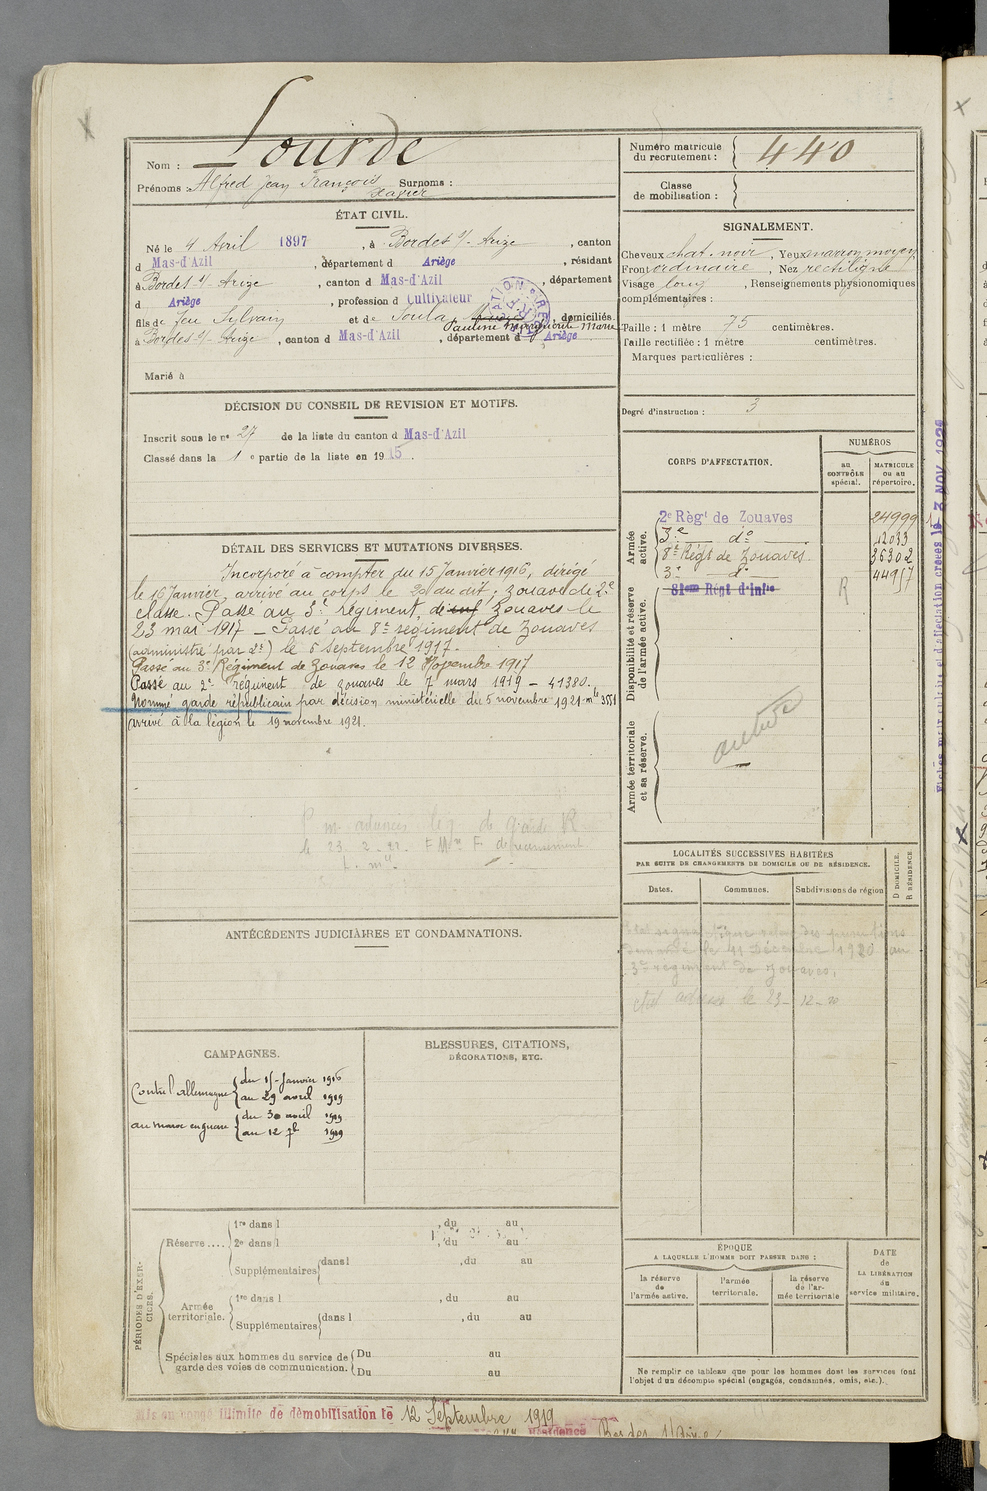 Nom : Lourde
Prénoms : Alfred Jean François Surnoms :
Xavier
Numéro matricule
du recrutement : 440
Classe
de mobilisation :
ÉTAT CIVIL.
Né le 4 Avril 1897, à Bordes s/- Arize, canton
d Mas-d'Azil, département d Ariège, résidant
à Bordes s/- Arize, canton d Mas-d'Azil, département
d Ariège, profession d Cultivateur
fils de feu Sylvain et de Soula domiciliés
Pauline Marguerite Marie
à Bordes s/- Arize, canton d Mas-d'Azil, département d Ariège
Marié à
SIGNALEMENT.
Cheveux chat. noir, Yeux marron moyen
Front ordinaire, Nez rectiligne
Visage long, Renseignements physionomiques
complémentaires :
Taille : 1 mètre 75 centimètres.
Taille rectifiée : 1 mètre centimètres.
Marques particulières :
Degré d'instruction : 3
DÉCISION DU CONSEIL DE REVISION ET MOTIFS.
Inscrit sous le nº 27 de la liste du canton d Mas-d'Azil
Classé dans la 1 e partie de la liste en 1915.
CORPS D'AFFECTATION.
NUMÉROS
au
CONTRÔLE
spécial.
MATRICULE
ou au
répertoire.
Armée
active.
2e Régt de Zouaves 24999
3e do 12033
8e Régt de Zouaves 36302
3e do 44957
Disponibilité et réserve
de l'armée active.
81eme Régt d'Infie
R
Armée territoriale
et sa réserve.
DÉTAIL DES SERVICES ET MUTATIONS DIVERSES.
Incorporé à compter du 15 Janvier 1916, dirigé
le 16 Janvier, arrivé au corps le 20 du dit ; zouave de 2e
classe. Passé au 3e régiment de Zouaves le
23 mai 1917 – Passé au 8e régiment de Zouaves
(administré par 2e) le 5 Septembre 1917.
Passé au 3e Régiment de Zouaves le 12 Novembre 1917
Passé au 2e régiment de zouaves le 7 mars 1919 – 41380.
Nommé garde républicain par décision ministérielle du 5 novembre 1921 – mle 3551
arrivé à la légion le 19 novembre 1921.
ANTÉCÉDENTS JUDICIAIRES ET CONDAMNATIONS.
LOCALITÉS SUCCESSIVES HABITÉES
PAR SUITE DE CHANGEMENTS DE DOMICILE OU DE RÉSIDENCE.
Dates.
Communes.
Subdivisions de région
D DOMICILE.
R RÉSIDENCE.
le 11 Décembre 1920 au
3e régiment de zouaves,
CAMPAGNES.
Contre l'allemagne du 15 Janvier 1916
au 29 avril 1919
au maroc en guerre du 30 avril 1919
au 12 7bre 1919
BLESSURES, CITATIONS,
DÉCORATIONS, ETC.
PÉRIODES D'EXER-
CICES.
Réserve....
1re dans l , du au
2e dans l , du au
Supplémentaires dans l , du au
Armée
territoriale.
1re dans l , du au
Supplémentaires dans l , du au
Spéciales aux hommes du service de
garde des voies de communication.
Du au
Du au
ÉPOQUE
A LAQUELLE L'HOMME DOIT PASSER DANS :
la réserve
de
l'armée active.
l'armée
territoriale.
la réserve
de l'ar-
mée territoriale
DATE
de
LA LIBÉRATION
du
service militaire.
Ne remplir ce tableau que pour les hommes dont les services font
l'objet d'un décompte spécial (engagés, condamnés, omis, etc.).
Mis en congé illimité de démobilisation le 12 Septembre 1919
Résidence Bordes s/Arize